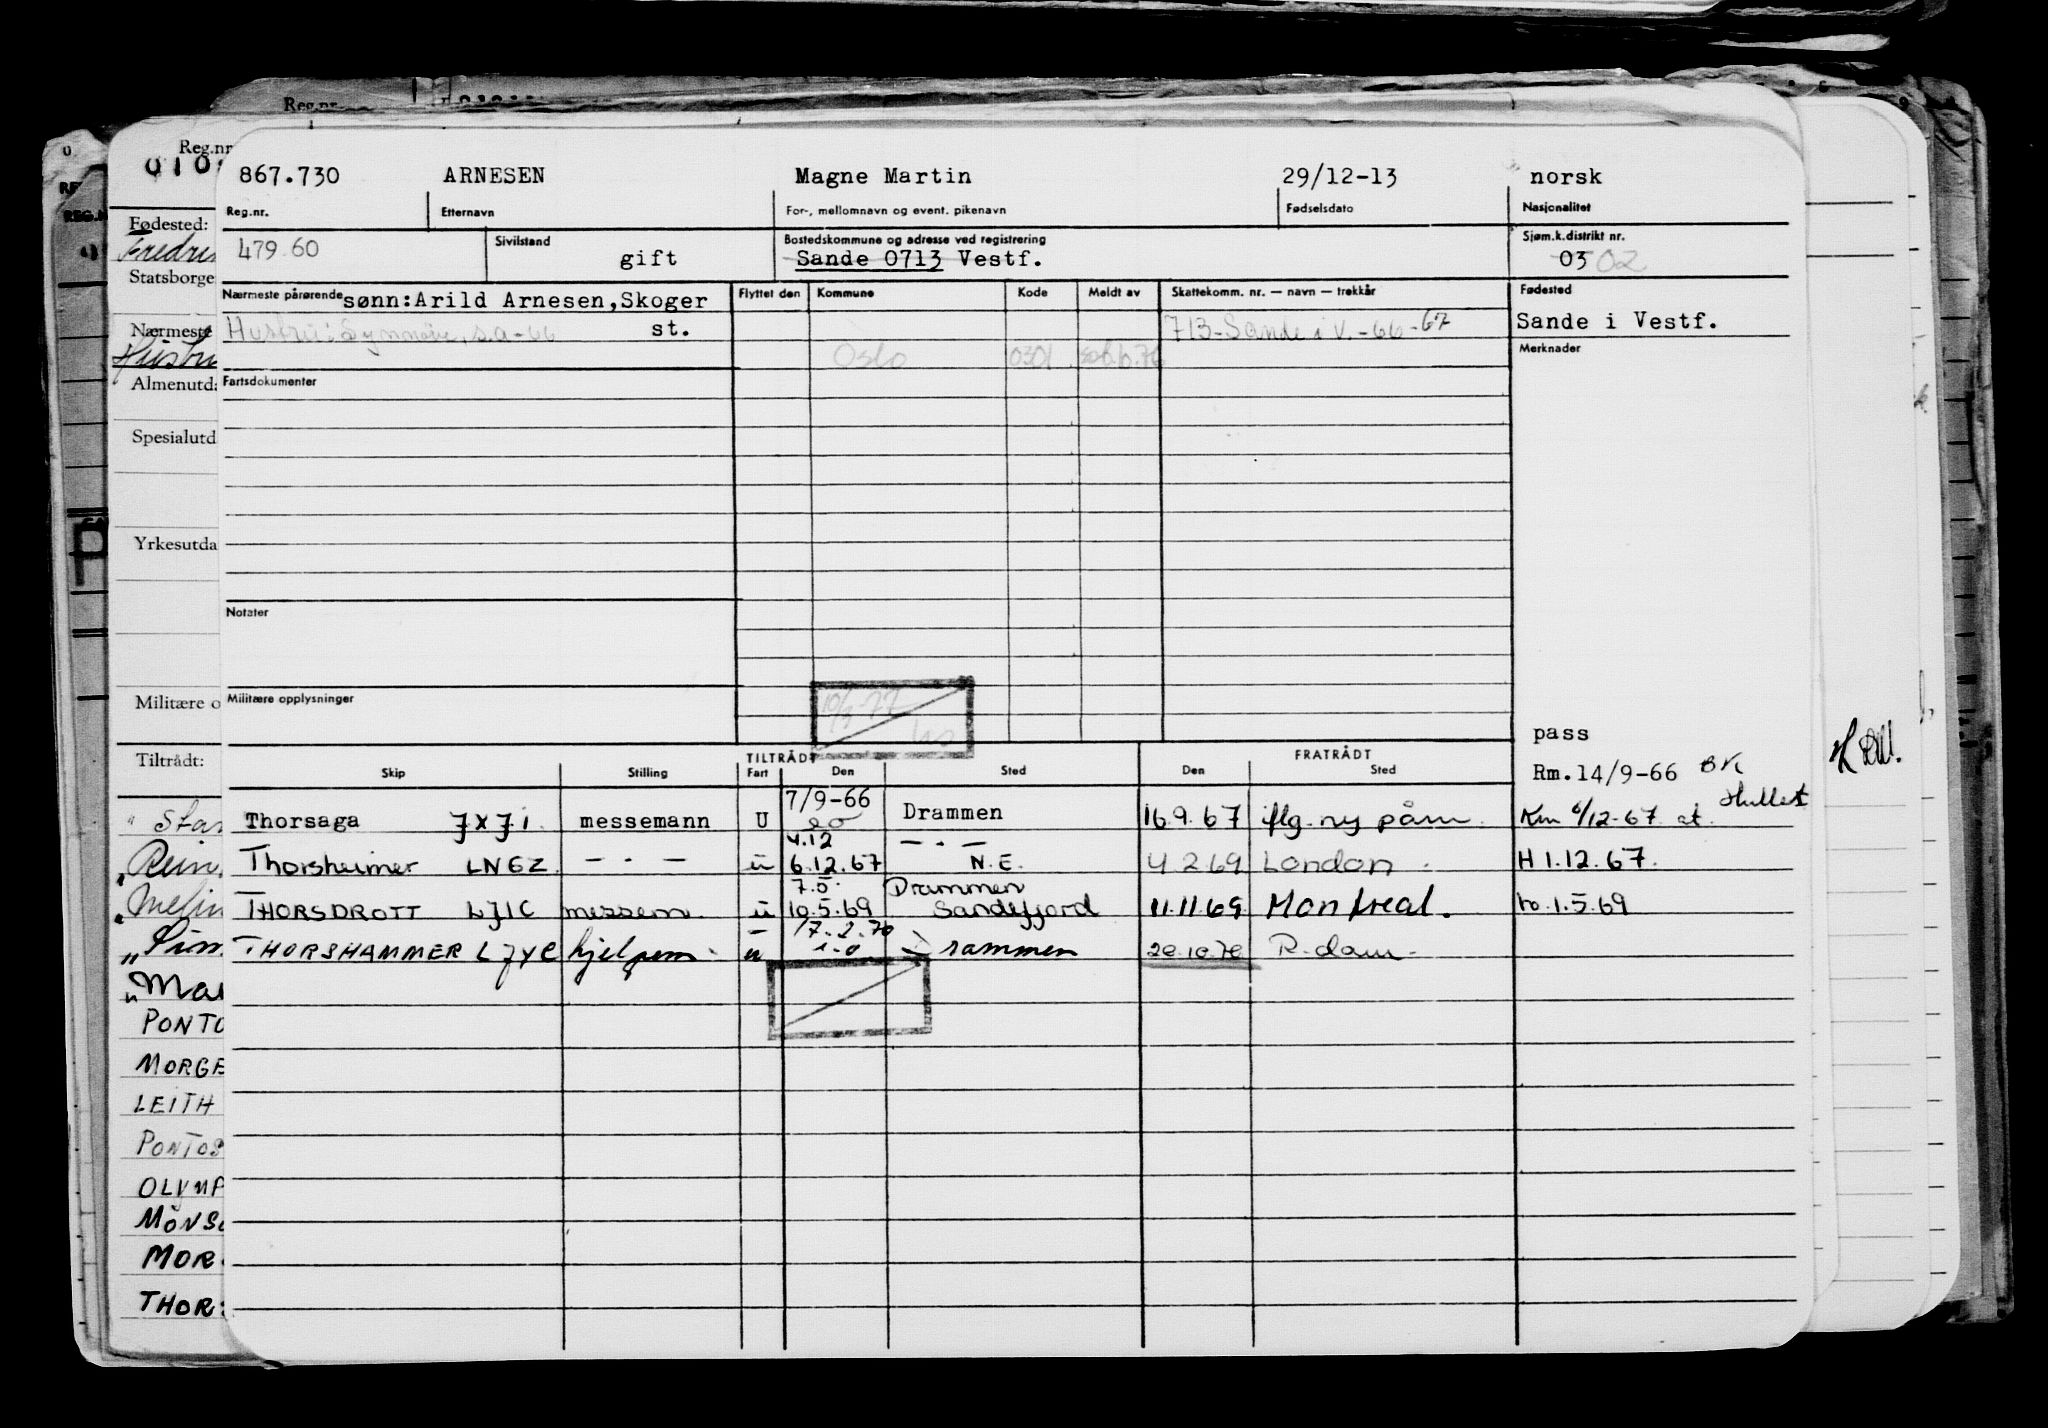 Reg.nr.
867.730 ARNESEN Magne Martin 29/12-13 norsk
Reg.nr. Etternavn For-, mellomnavn og event. pikenavn Fødselsdato Nasjonalitet
479.60 Sivilstand gift Bostedskommune og adresse ved registrering Sjøm.k.distrikt nr.
Sande 0713 Vestf. 03 02
Nærmeste pårørende sønn:Arild Arnesen,Skoger st. Flyttet den Kommune Kode Meldt av Skattekomm. nr. — navn — trekkår Fødested
Hustru: Synnøve, s.a-66 713-Sande i V.-66-67 Sande i Vestf.
Oslo 0301 Merknader
Fartsdokumenter
Notater
Militære opplysninger
10/3-77
pass
TILTRÅDT FRATRÅDT
Skip Stilling Fart Den Sted Den Sted Rm.14/9-66 BK
Thorsaga JXJI. messemann U 7/9-66 Drammen 16.9.67 flg. ny påm. Km 6/12-67 at. Hullest
Thorsheimer LNGZ — . — u 4.12 6.12.67 — . — N.E. 4 2.69 London H 1.12.67.
THORSDROTT LJIC messem. u 7.5. 10.5.69 Drammen Sandefjord 11.11.69 Montreal. 1.5.69
THORSHAMMER LJYC hjelpem. u 17.2.70 rammen 20.10.70 R.dam.
Reg.nr.
Fødested:
Statsborge
Nærmeste
Almenutd
Spesialutd
Yrkesutda
Militære o
Tiltrådt:
Star
PONTO
MORGE
LEITH
PONTOS
OLYMP
MOR
THOR